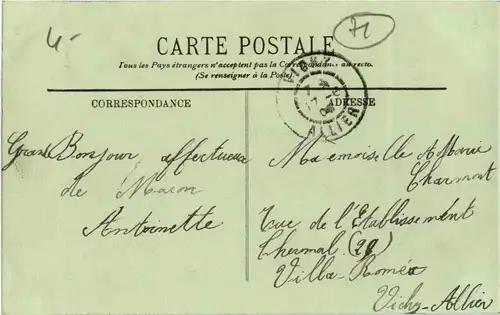 4-
71
CARTE POSTALE
Tous les Pays étrangers n'acceptent pas la Correspondance au recto.
(Se renseigner à la Poste)
VICHY
ALLIER
CORRESPONDANCE
ADRESSE
Grand Bonjour affectueux
de Macon
Antoinette
Mademoiselle Marie
Charmont
rue de l'Etablissement
Thermal (29)
Villa-Roméo
Vichy-Allier